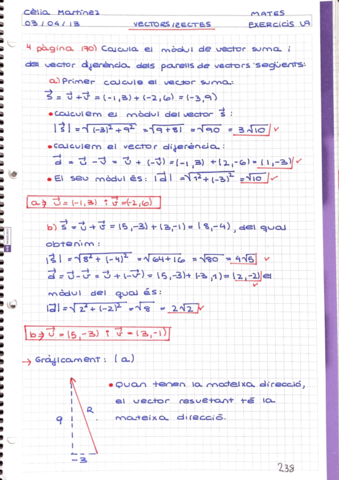 Cèlia Martínez MATES
03/04/13 VECTORS/RECTES EXERCICIS
4 pàgina 170) Calcula el mòdul de vector suma i
del vector diferència dels parells de vectors següents:
a) Primer calcula el vector suma:
S⃗ = u⃗ + v⃗ = (-1,3) + (-2,6) = (-3,9)
• Calculem el mòdul del vector S⃗:
|S⃗| = √(-3)² + 9² = √9 + 81 = √90 = 3√10 ✓
• Calculem el vector diferència:
d⃗ = u⃗ - v⃗ = u⃗ + (-v⃗) = (-1,3) + (2,-6) = (1,-3) ✓
• El seu mòdul és: |d⃗| = √1² + (-3)² = √10 ✓
a) u⃗ = (-1,3) i v⃗ = (-2,6)
b) S⃗ = u⃗ + v⃗ = (5,-3) + (3,-1) = (8,-4), del qual
obtenim:
|S⃗| = √8² + (-4)² = √64 + 16 = √80 = 4√5 ✓
d⃗ = u⃗ - v⃗ = u⃗ + (-v⃗) = (5,-3) + (-3,1) = (2,-2) el
mòdul del qual és: ✓
|d⃗| = √2² + (-2)² = √8 = 2√2 ✓
b) u⃗ = (5,-3) i v⃗ = (3,-1)
→ Gràficament: (a)
• Quan tenen la mateixa direcció,
el vector resultant té la
mateixa direcció.
9 R
-3
238